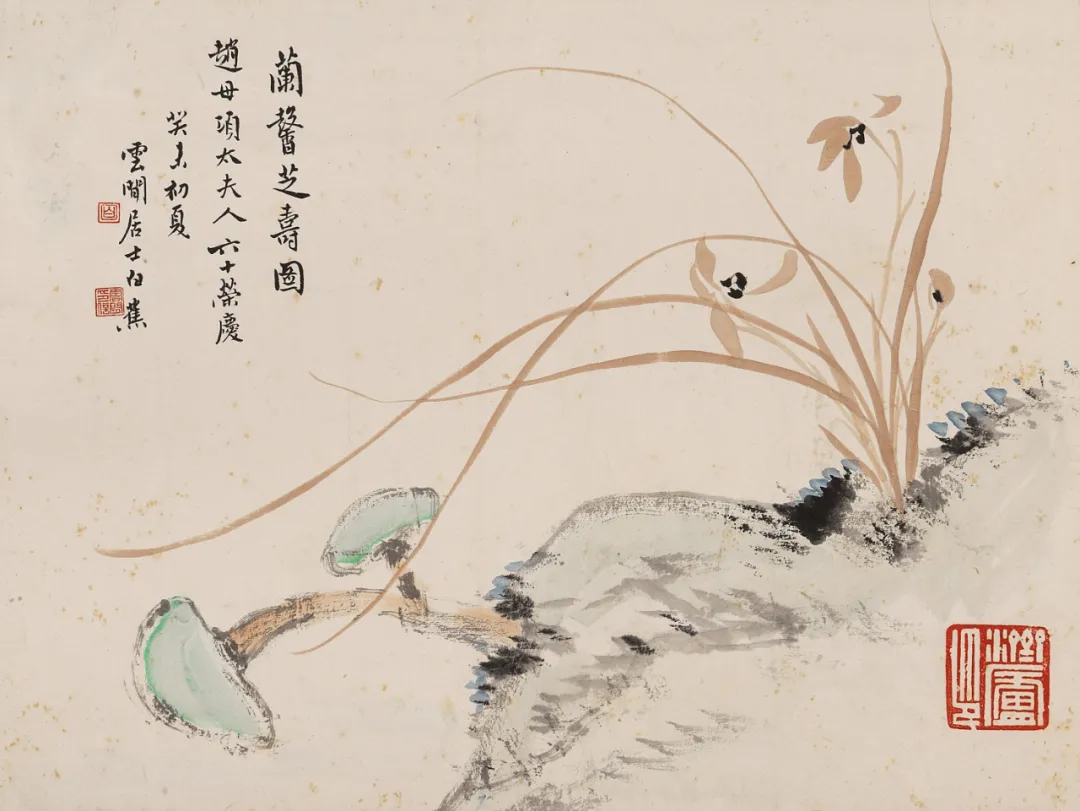 蘭馨芝壽圖
趙母項太夫人六十榮慶
癸未初夏
雲間居士白蕉